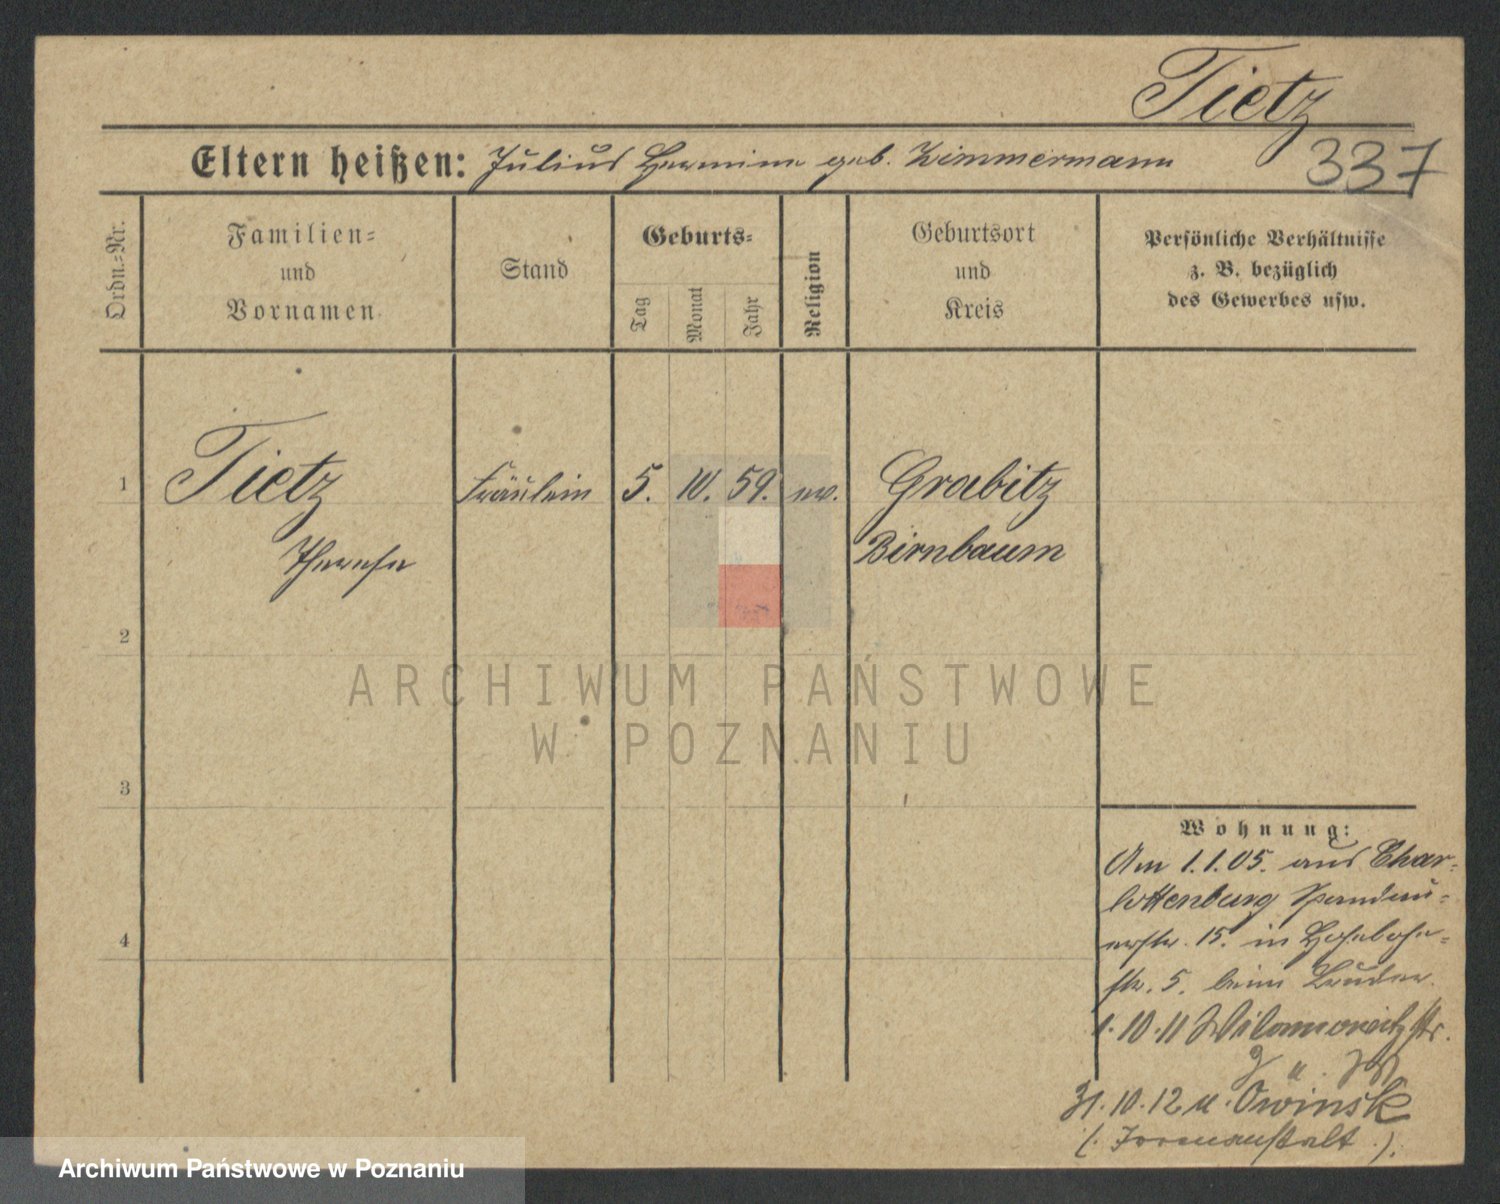 Tietz
337
Eltern heißen: Julius Hermine geb. Zimmermann
Ordn.-Nr.
Familien-
und
Vornamen
Stand
Geburts-
Tag
Monat
Jahr
Religion
Geburtsort
und
Kreis
Persönliche Verhältnisse
z. B. bezüglich
des Gewerbes usw.
1
Tietz
Therese
Fräulein
5. 10. 59.
ev.
Grabitz
Birnbaum
2
3
4
ARCHIWUM PAŃSTWOWE
W POZNANIU
Wohnung:
Am 1.1.05. aus Char-
lottenburg Spandau-
erstr. 15. in
str. 5. beim Bruder.
1.10.11 Wilamowitzstr.
31.10.12 n. Owinsk
(Irrenanstalt).
Archiwum Państwowe w Poznaniu